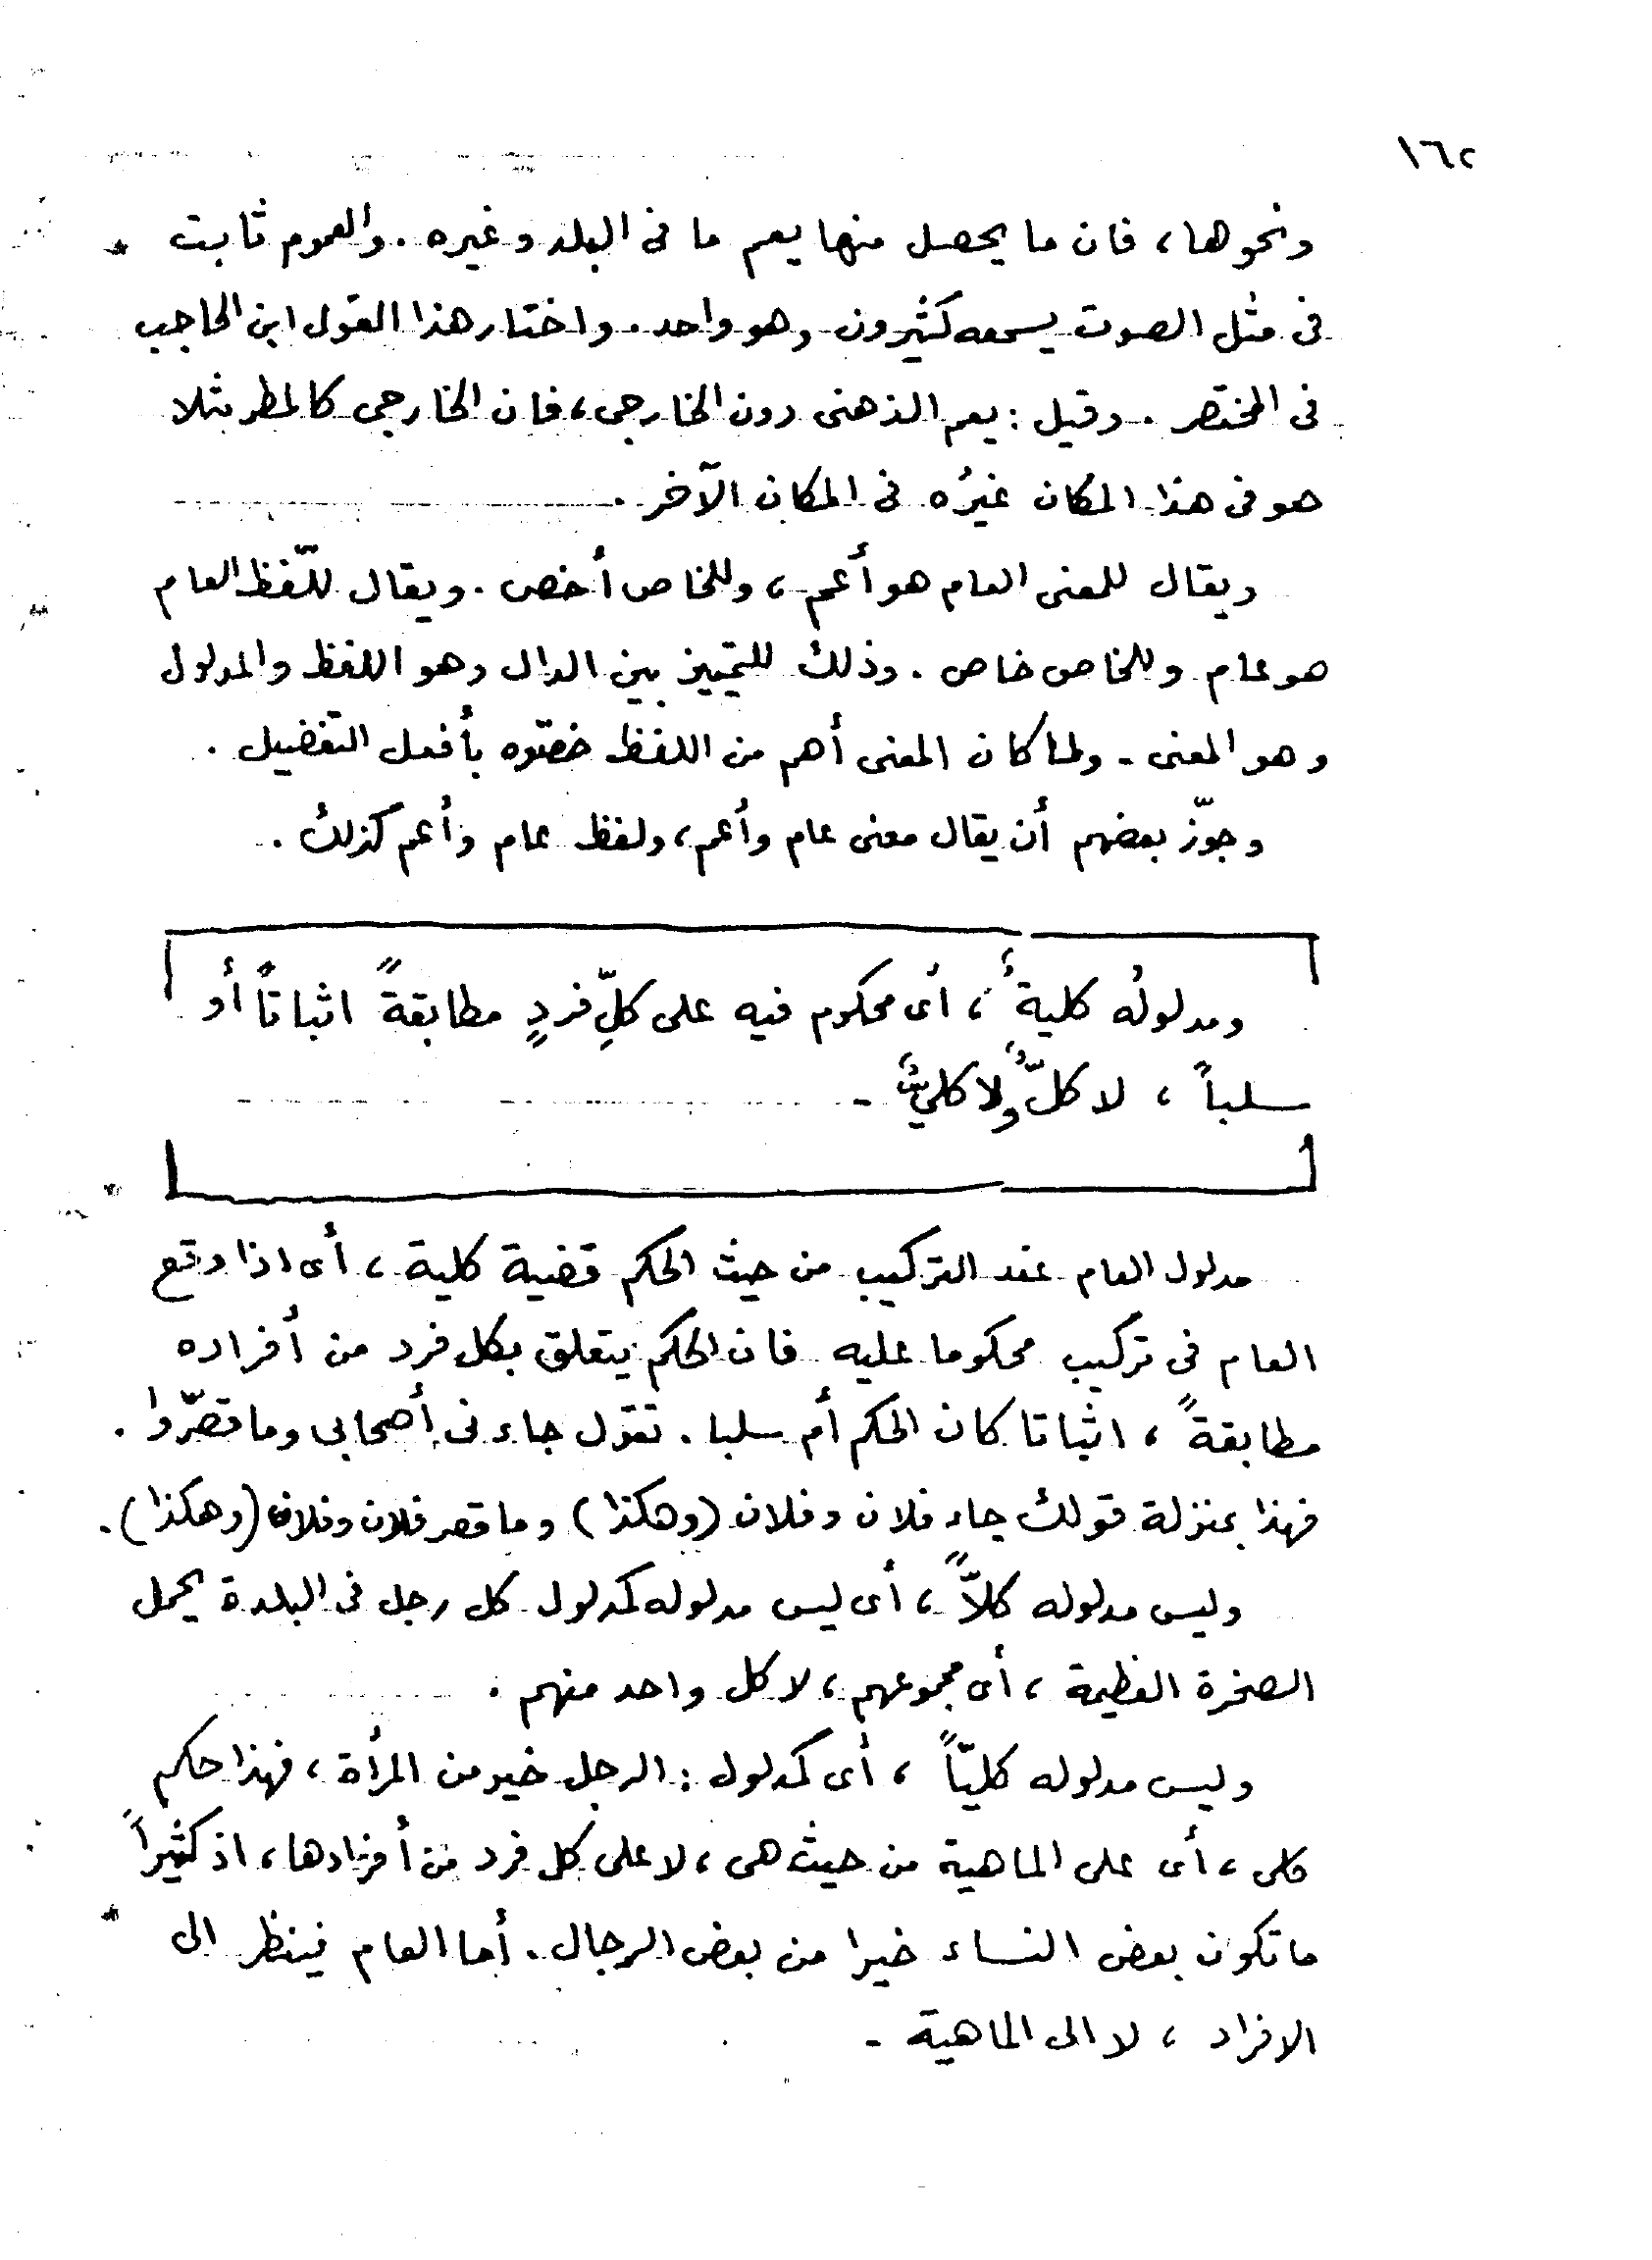 ١٦٢
ونحوها، فان ما يحصل منها يعم ما فى البلد وغيره. والعموم ثابت
فى مثل الصوت يسمعه كثيرون وهو واحد. واختار هذا القول ابن الحاجب
فى المختصر. وقيل: يعم الذهنى دون الخارجى، فان الخارجى كالمطر مثلا
هو فى هذا المكان غيرُه فى المكان الآخر.
ويقال للمعنى العام هو أعم، وللخاص أخص. ويقال للّفظ العام
هو عام وللخاص خاص. وذلك للتمييز بين الدال وهو اللفظ والمدلول
وهو المعنى. ولما كان المعنى أهم من اللفظ خصّوه بأفعل التفضيل.
وجوّز بعضهم أن يقال معنى عام وأعم، ولفظ عام وأعم كذلك.
ومدلولُه كليةٌ، أى محكوم فيه على كلِّ فردٍ مطابقةً اثباتاً أو
سلباً، لا كلٌّ ولا كليٌّ.
مدلول العام عند التركيب من حيث الحكم قضية كلية، أى اذا وقع
العام فى تركيب محكوما عليه فان الحكم يتعلق بكل فرد من أفراده
مطابقةً، اثباتا كان الحكم أم سلبا. تقول جاءنى أصحابى وما قصّروا.
فهذا بمنزلة قولك جاء فلان وفلان (وهكذا) وما قصر فلان وفلان (وهكذا).
وليس مدلوله كلاًّ، أى ليس مدلوله كمدلول كل رجل فى البلدة يحمل
الصخرة العظيمة، أى مجموعهم، لا كل واحد منهم.
وليس مدلوله كليّاً، أى كمدلول: الرجل خير من المرأة، فهذا حكم
كلى، أى على الماهية من حيث هى، لا على كل فرد من أفرادها، اذ كثيراً
ما تكون بعض النساء خيرا من بعض الرجال. أما العام فينظر الى
الافراد، لا الى الماهية.